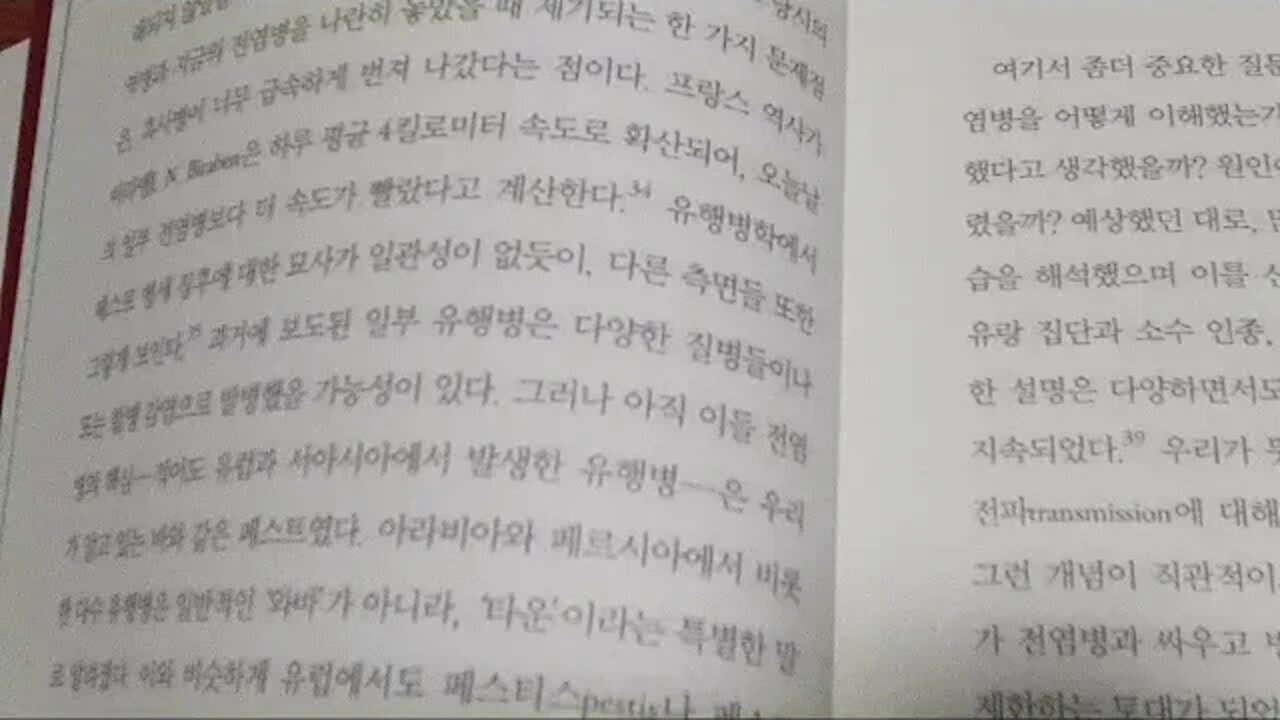 당시의
전염병을 나란히 놓았을 때 제기되는 한 가지 문제점
은 흑사병이 너무 급속하게 번져 나갔다는 점이다. 프랑스 역사가
N. Biraben은 하루 평균 4킬로미터 속도로 확산되어, 오늘날
의 일부 전염병보다 더 속도가 빨랐다고 계산한다.34 유행병학에서
페스트 병세 징후에 대한 묘사가 일관성이 없듯이, 다른 측면들 또한
그렇게 보인다.35 과거에 보도된 일부 유행병은 다양한 질병들이나
또는 합병 감염으로 발병했을 가능성이 있다. 그러나 아직 이들 전염
병의 핵심—적어도 유럽과 서아시아에서 발생한 유행병—은 우리
가 알고 있는 바와 같은 페스트였다. 아라비아와 페르시아에서 비롯
한 다수 유행병은 일반적인 '와바'가 아니라, '타운'이라는 특별한 말
로 알려졌다. 이와 비슷하게 유럽에서도 페스티스pestis나
여기서 좀더 중요한 질문
염병을 어떻게 이해했는가
했다고 생각했을까? 원인
렸을까? 예상했던 대로,
습을 해석했으며 이를
유랑 집단과 소수 인종,
한 설명은 다양하면서도
지속되었다.39 우리가
전파transmission에 대해
그런 개념이 직관적이
가 전염병과 싸우고
제한하는 토대가 되어